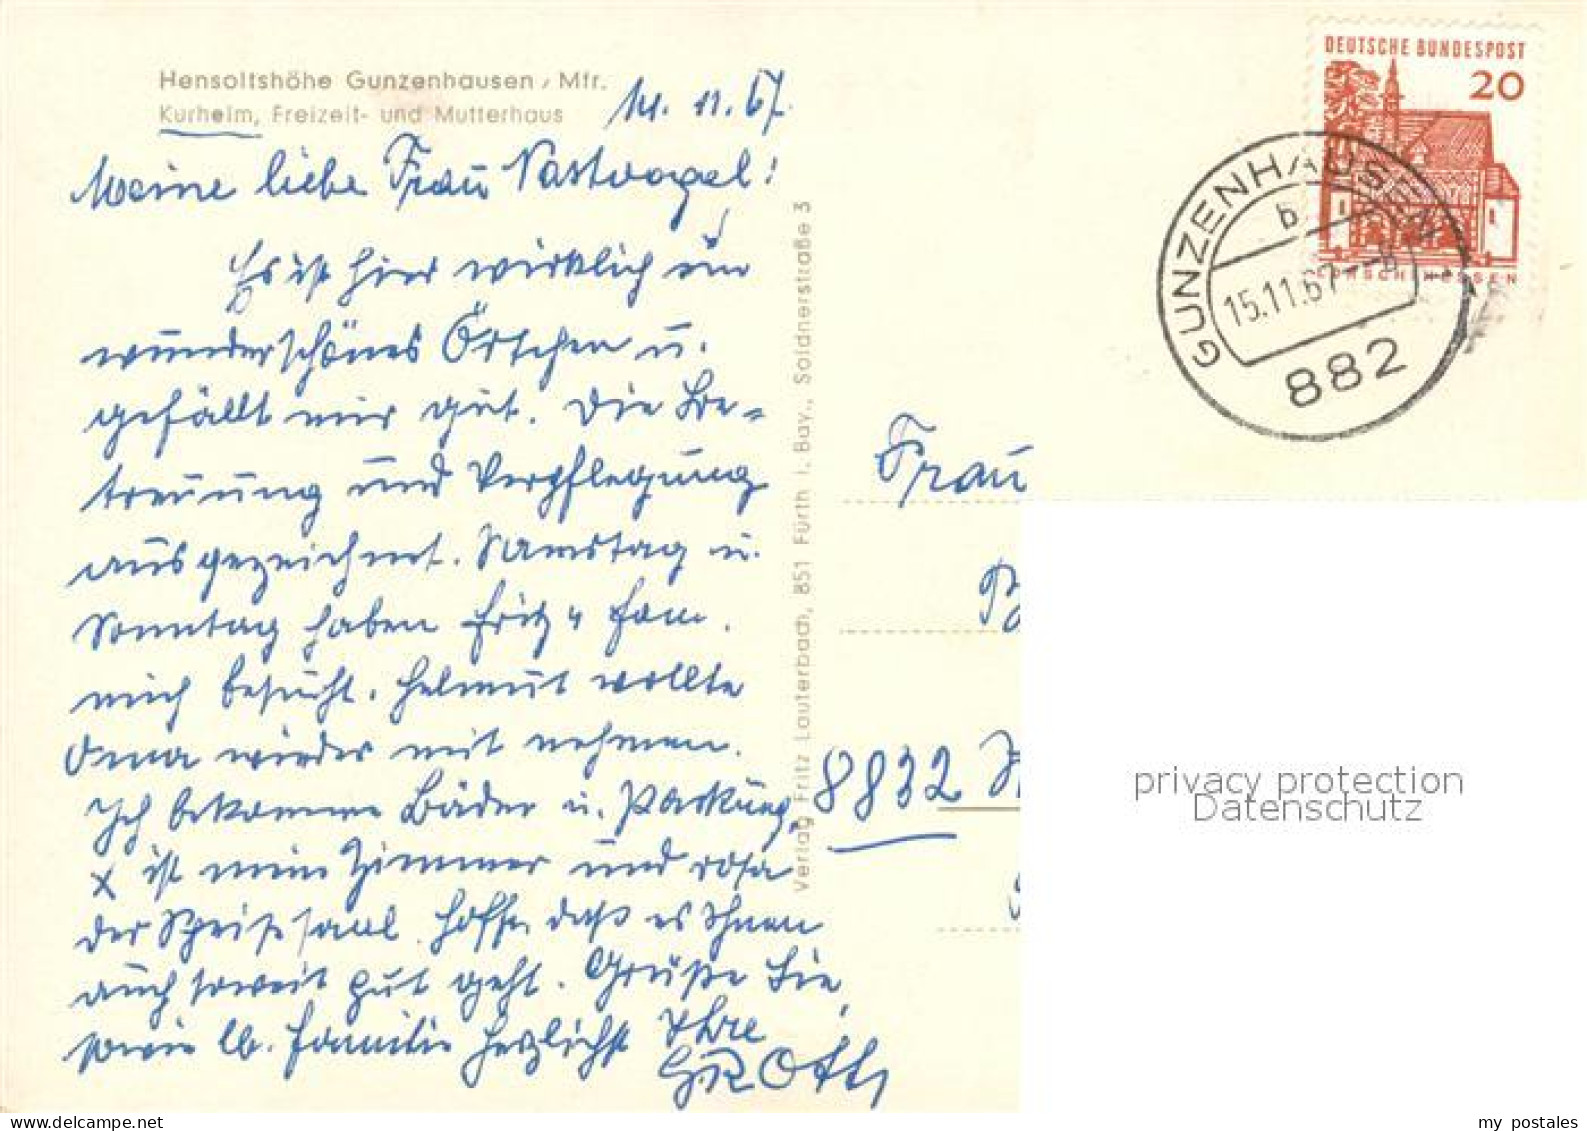 Hensoltshöhe Gunzenhausen / Mfr.
Kurheim, Freizeit- und Mutterhaus
14. 11. 67.
Meine liebe Frau Nastvogel!
Es ist hier wirklich ein
wunderschönes Örtchen u.
gefällt mir gut. Die Be-
treuung und Verpflegung
ausgezeichnet. Samstag u.
Sonntag haben Fritz u Fam.
mich besucht. Helmut wollte
Oma wieder mit nehmen.
Ich bekomme Bäder u. Packung,
x ist mein Zimmer und rosa
der Speisesaal. Hoffe, daß es Ihnen
auch soweit gut geht. Grüße Sie,
sowie lb. Familie herzlichst Ihre
Verlag Fritz Lauterbach, 851 Fürth i. Bay., Soldnerstraße 3
DEUTSCHE BUNDESPOST
20
LORSCH HESSEN
GUNZENHAUSEN
b
15.11.67
882
Frau
8832
privacy protection
Datenschutz
my postales